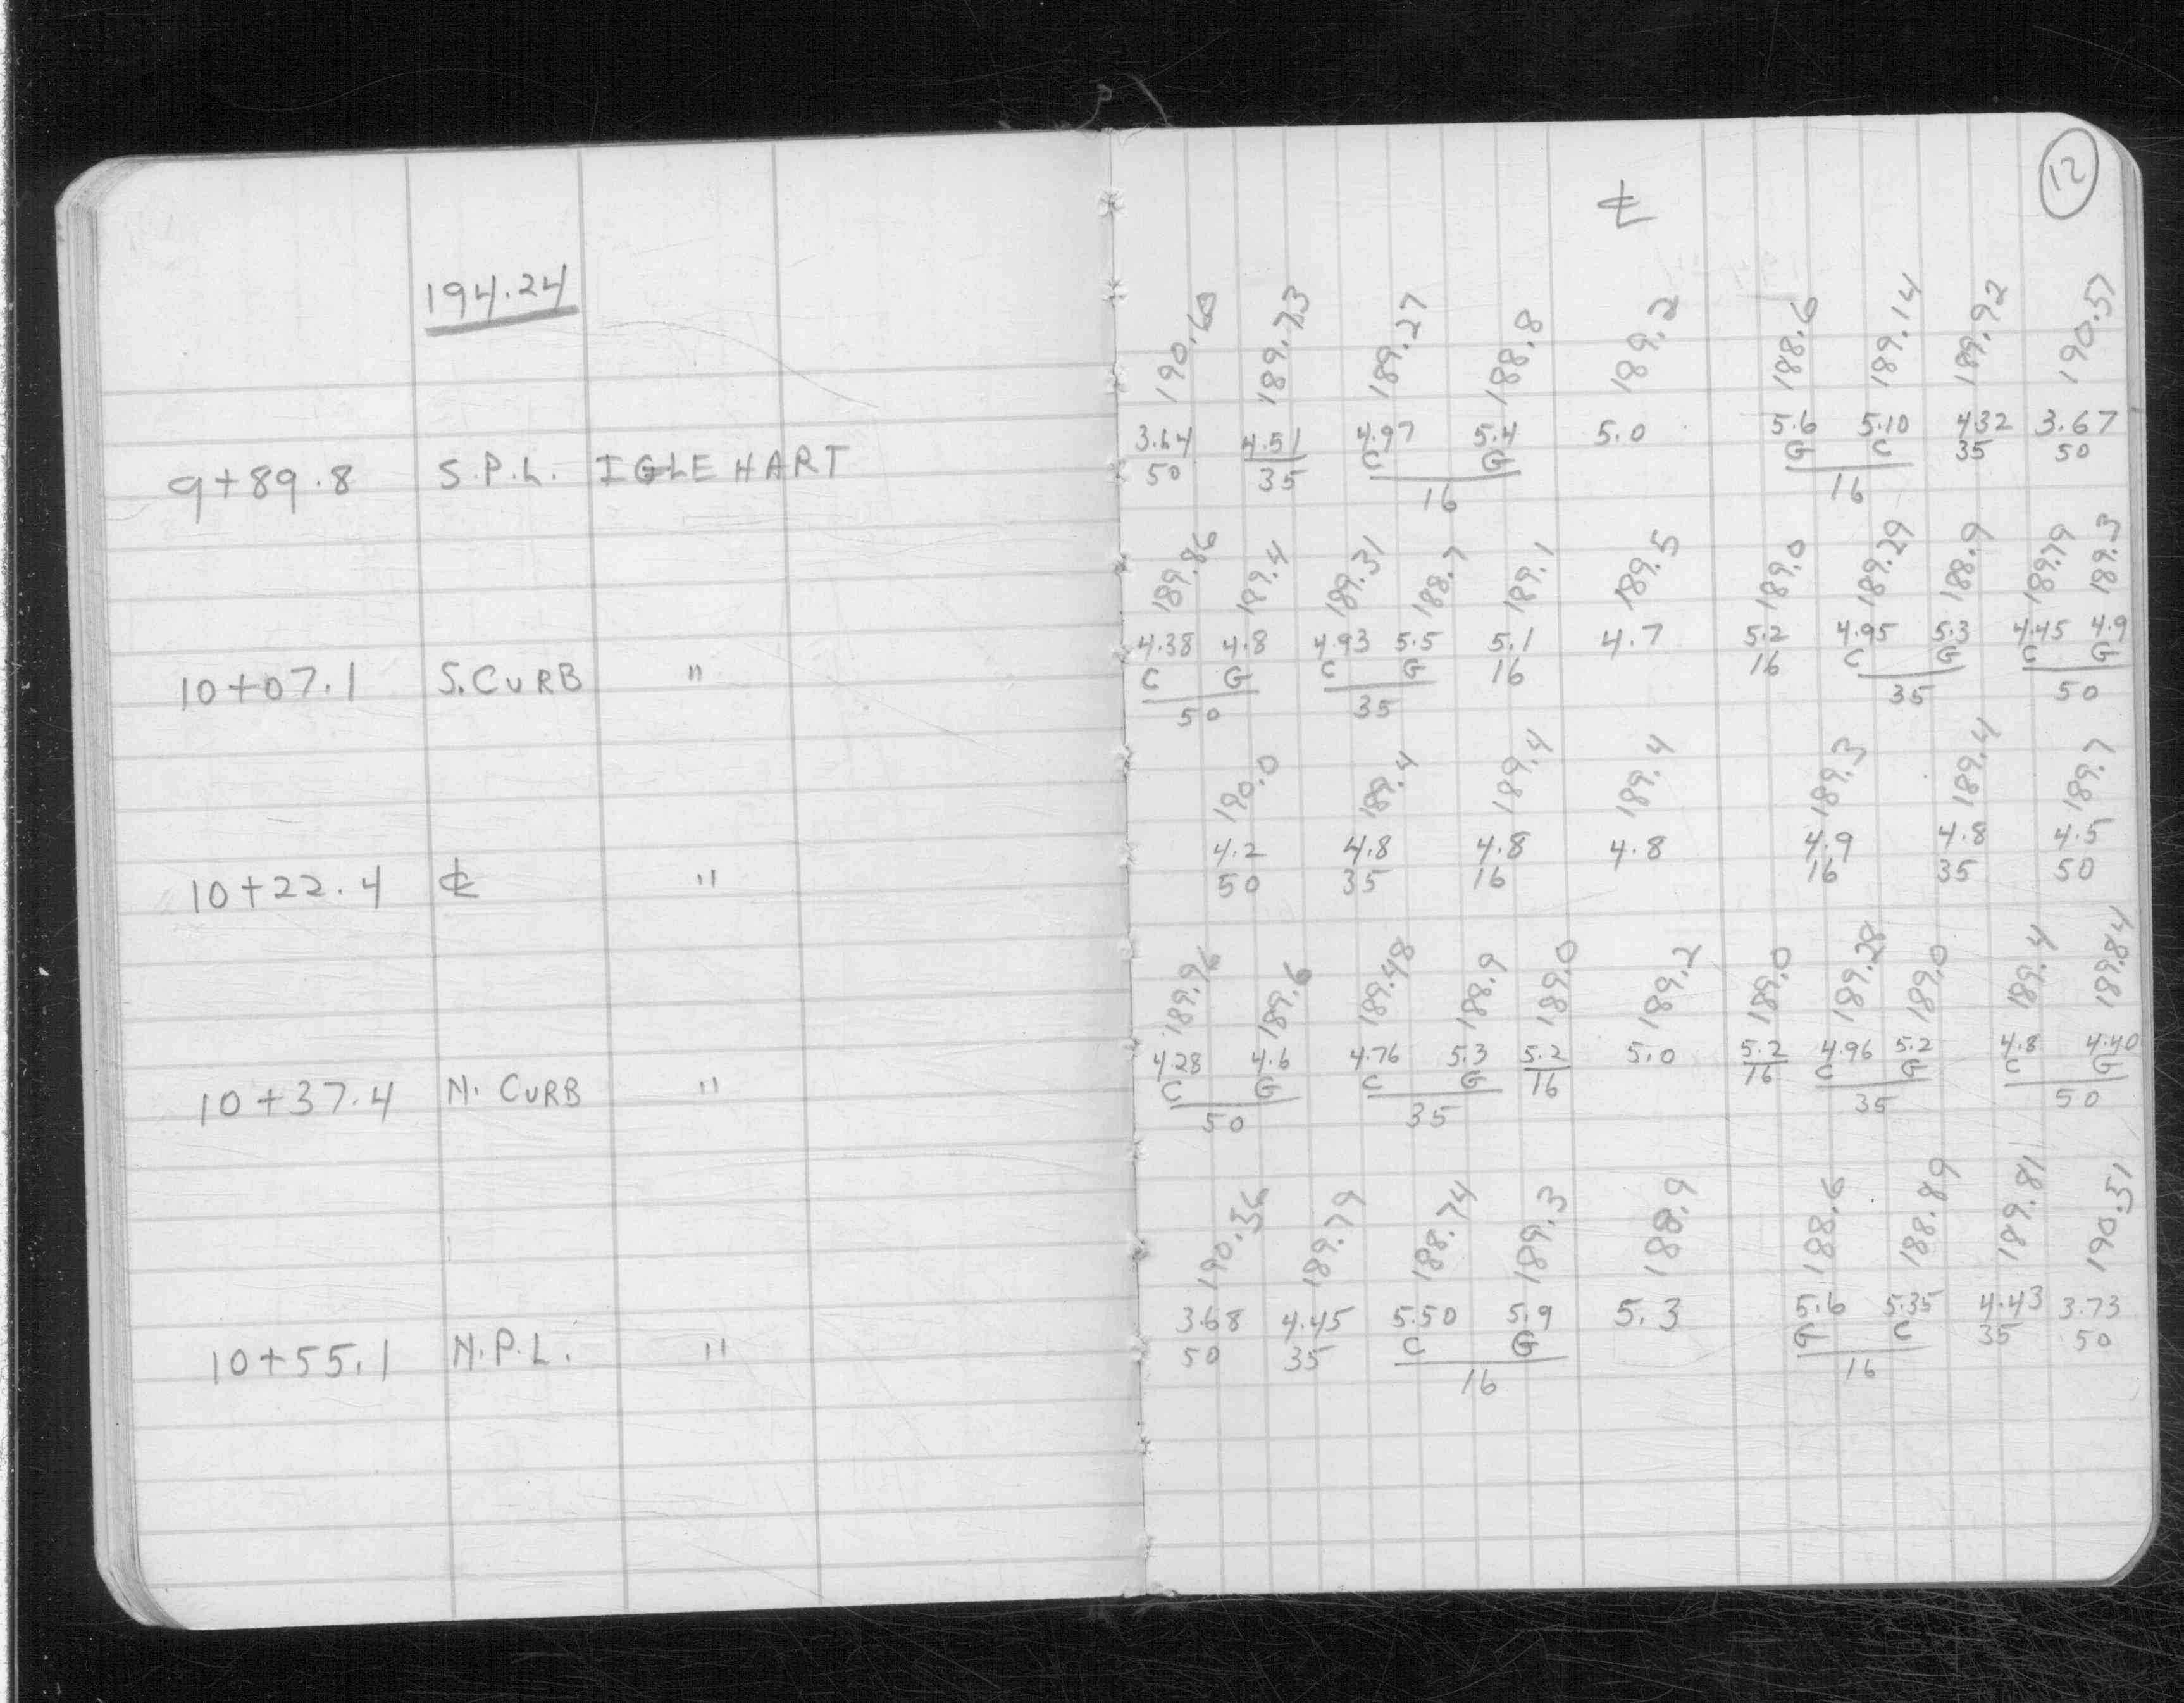 12
℄
194.24
190.60 189.73 189.27 188.8 189.2 188.6 189.14 189.92 190.57
3.64 4.51 4.97 5.4 5.0 5.6 5.10 4.32 3.67
9+89.8 S.P.L. IGLEHART 50 35 C G G C 35 50
16 16
189.86 189.4 189.31 188.7 189.1 189.5 189.0 189.29 188.9 189.79 189.3
4.38 4.8 4.93 5.5 5.1 4.7 5.2 4.95 5.3 4.45 4.9
10+07.1 S. CURB " C G C G 16 16 C G C G
50 35 35 50
190.0 189.4 189.4 189.4 189.3 189.4 189.7
4.2 4.8 4.8 4.8 4.9 4.8 4.5
10+22.4 ℄ " 50 35 16 16 35 50
189.96 189.6 189.48 188.9 189.0 189.2 189.0 189.28 189.0 189.4 189.84
4.28 4.6 4.76 5.3 5.2 5.0 5.2 4.96 5.2 4.8 4.40
10+37.4 N. CURB " C G C G 16 16 C G C G
50 35 35 50
190.56 189.79 188.74 189.3 188.9 188.6 188.89 189.81 190.51
3.68 4.45 5.50 5.9 5.3 5.6 5.35 4.43 3.73
10+55.1 N.P.L. " 50 35 C G G C 35 50
16 16